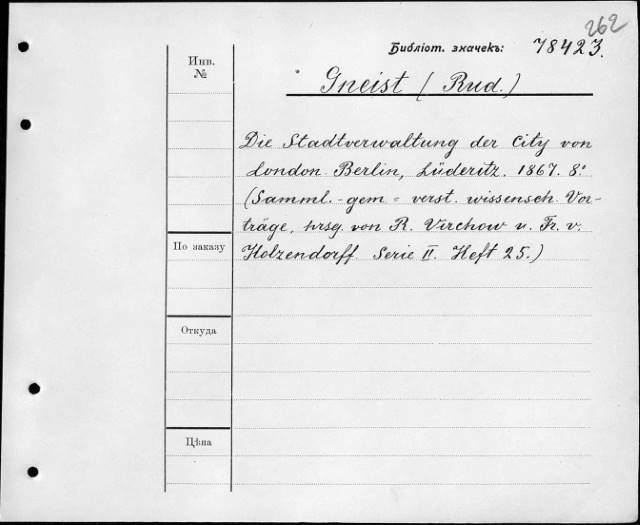 262
Библіот. значекъ: 78423.
Инв.
№
Gneist (Rud.)
Die Stadtverwaltung der City von
London. Berlin, Lüderitz. 1867. 8.°
(Samml. gem = verst. wissensch. Vor-
träge, hrsg. von R. Virchow u. Fr. v.
Holzendorff. Serie II. Heft 25.)
По заказу
Откуда
Цѣна